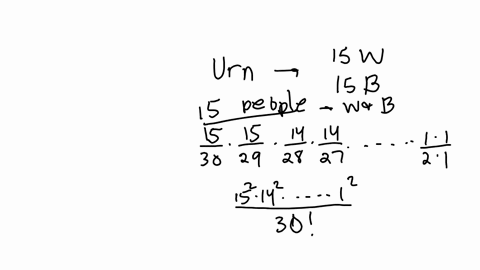 Urn → 15 W
15 B
15 people → W & B
15/30 · 15/29 · 14/28 · 14/27 · ····· · 1·1/2·1
15²·14²· ····· 1²/30!